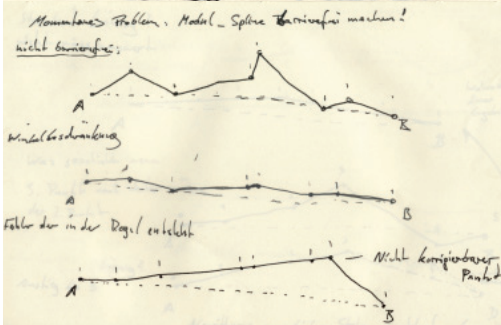 Momentanes Problem: Modal-Spline Barrierefrei machen!
nicht barrierefrei:
A
B
Winkelbeschränkung
A
B
Fehler der in der Regel entsteht
Nicht korrigierbarer
A
B